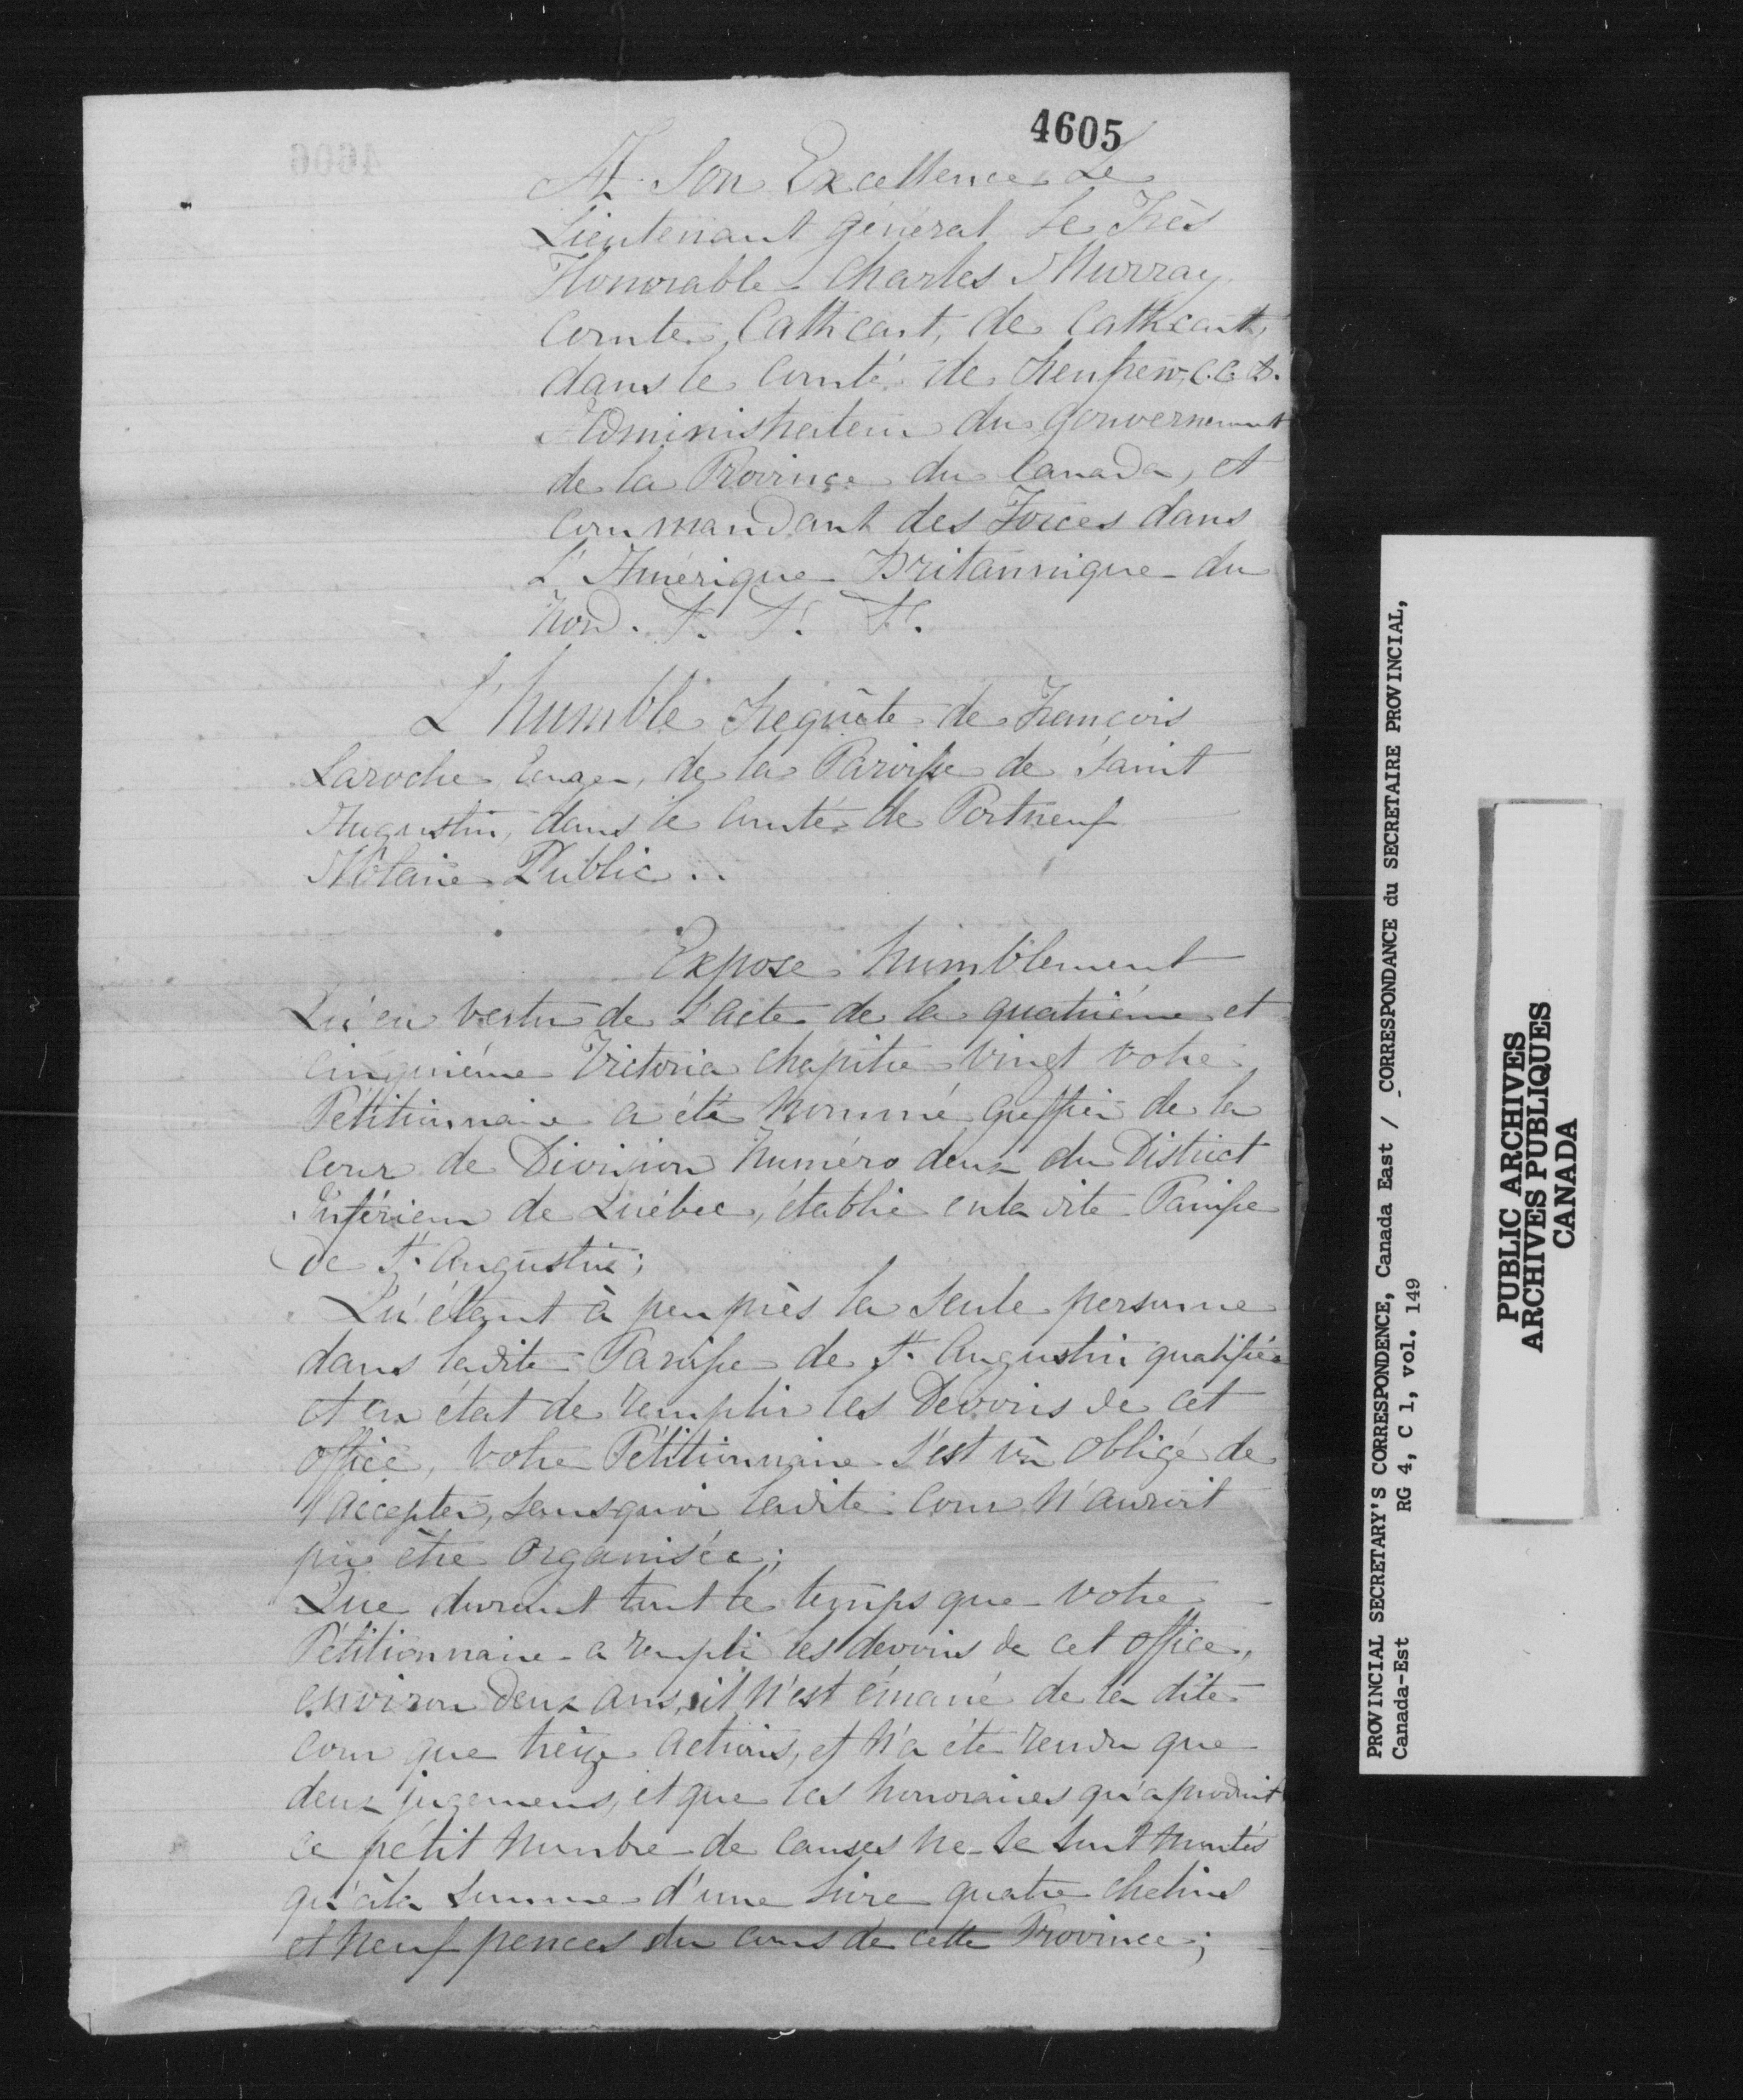 4605
A Son Excellence Le
Lieutenant général le Très
Honorable Charles Murray
Comte Cathcart, de Cathcart,
dans le Comté de Renfrew, C.C.B.
Administrateur du Gouvernement
de la Province du Canada, et
Commandant des Forces dans
L'Amérique Britannique du
Nord. &. &. &.
L'humble Requête de François
Laroche de la Paroisse de Saint
Augustin, dans le Comté de Portneuf
Notaire Public..
Expose humblement
Qu'en vertu de l'acte de la quatriéme et
Cinquiéme Victoria chapitre vingt votre
Pétitionnaire a été nommé Greffier de la
Cour de Division Numéro deux du District
Inférieur de Québec, établie en la dite Paroisse
de St. Augustin;
Qu'étant à peu près la seule personne
dans ladite Paroisse de St. Augustin qualifiée
et en état de remplir les Devoirs de cet
office, votre Pétitionnaire s'est vû obligé de
l'accepter, sans quoi ladite Cour n'auroit
pu être organisée;
Que durant tout le temps que votre
Pétitionnaire a rempli les devoirs de cet office,
environ deux ans, il n'est émané de la dite
Cour que treize actions, et n'a été rendu que
deux jugemens, et que les honoraires qu'a produit
ce pétit nombre de causes ne se sont montés
qu'à la somme d'une livre quatre chelins
et neuf pences du cours de cette Province;
PROVINCIAL SECRETARY'S CORRESPONDENCE, Canada East / CORRESPONDANCE du SECRETAIRE PROVINCIAL,
Canada-Est RG 4, C 1, vol. 149
PUBLIC ARCHIVES
ARCHIVES PUBLIQUES
CANADA